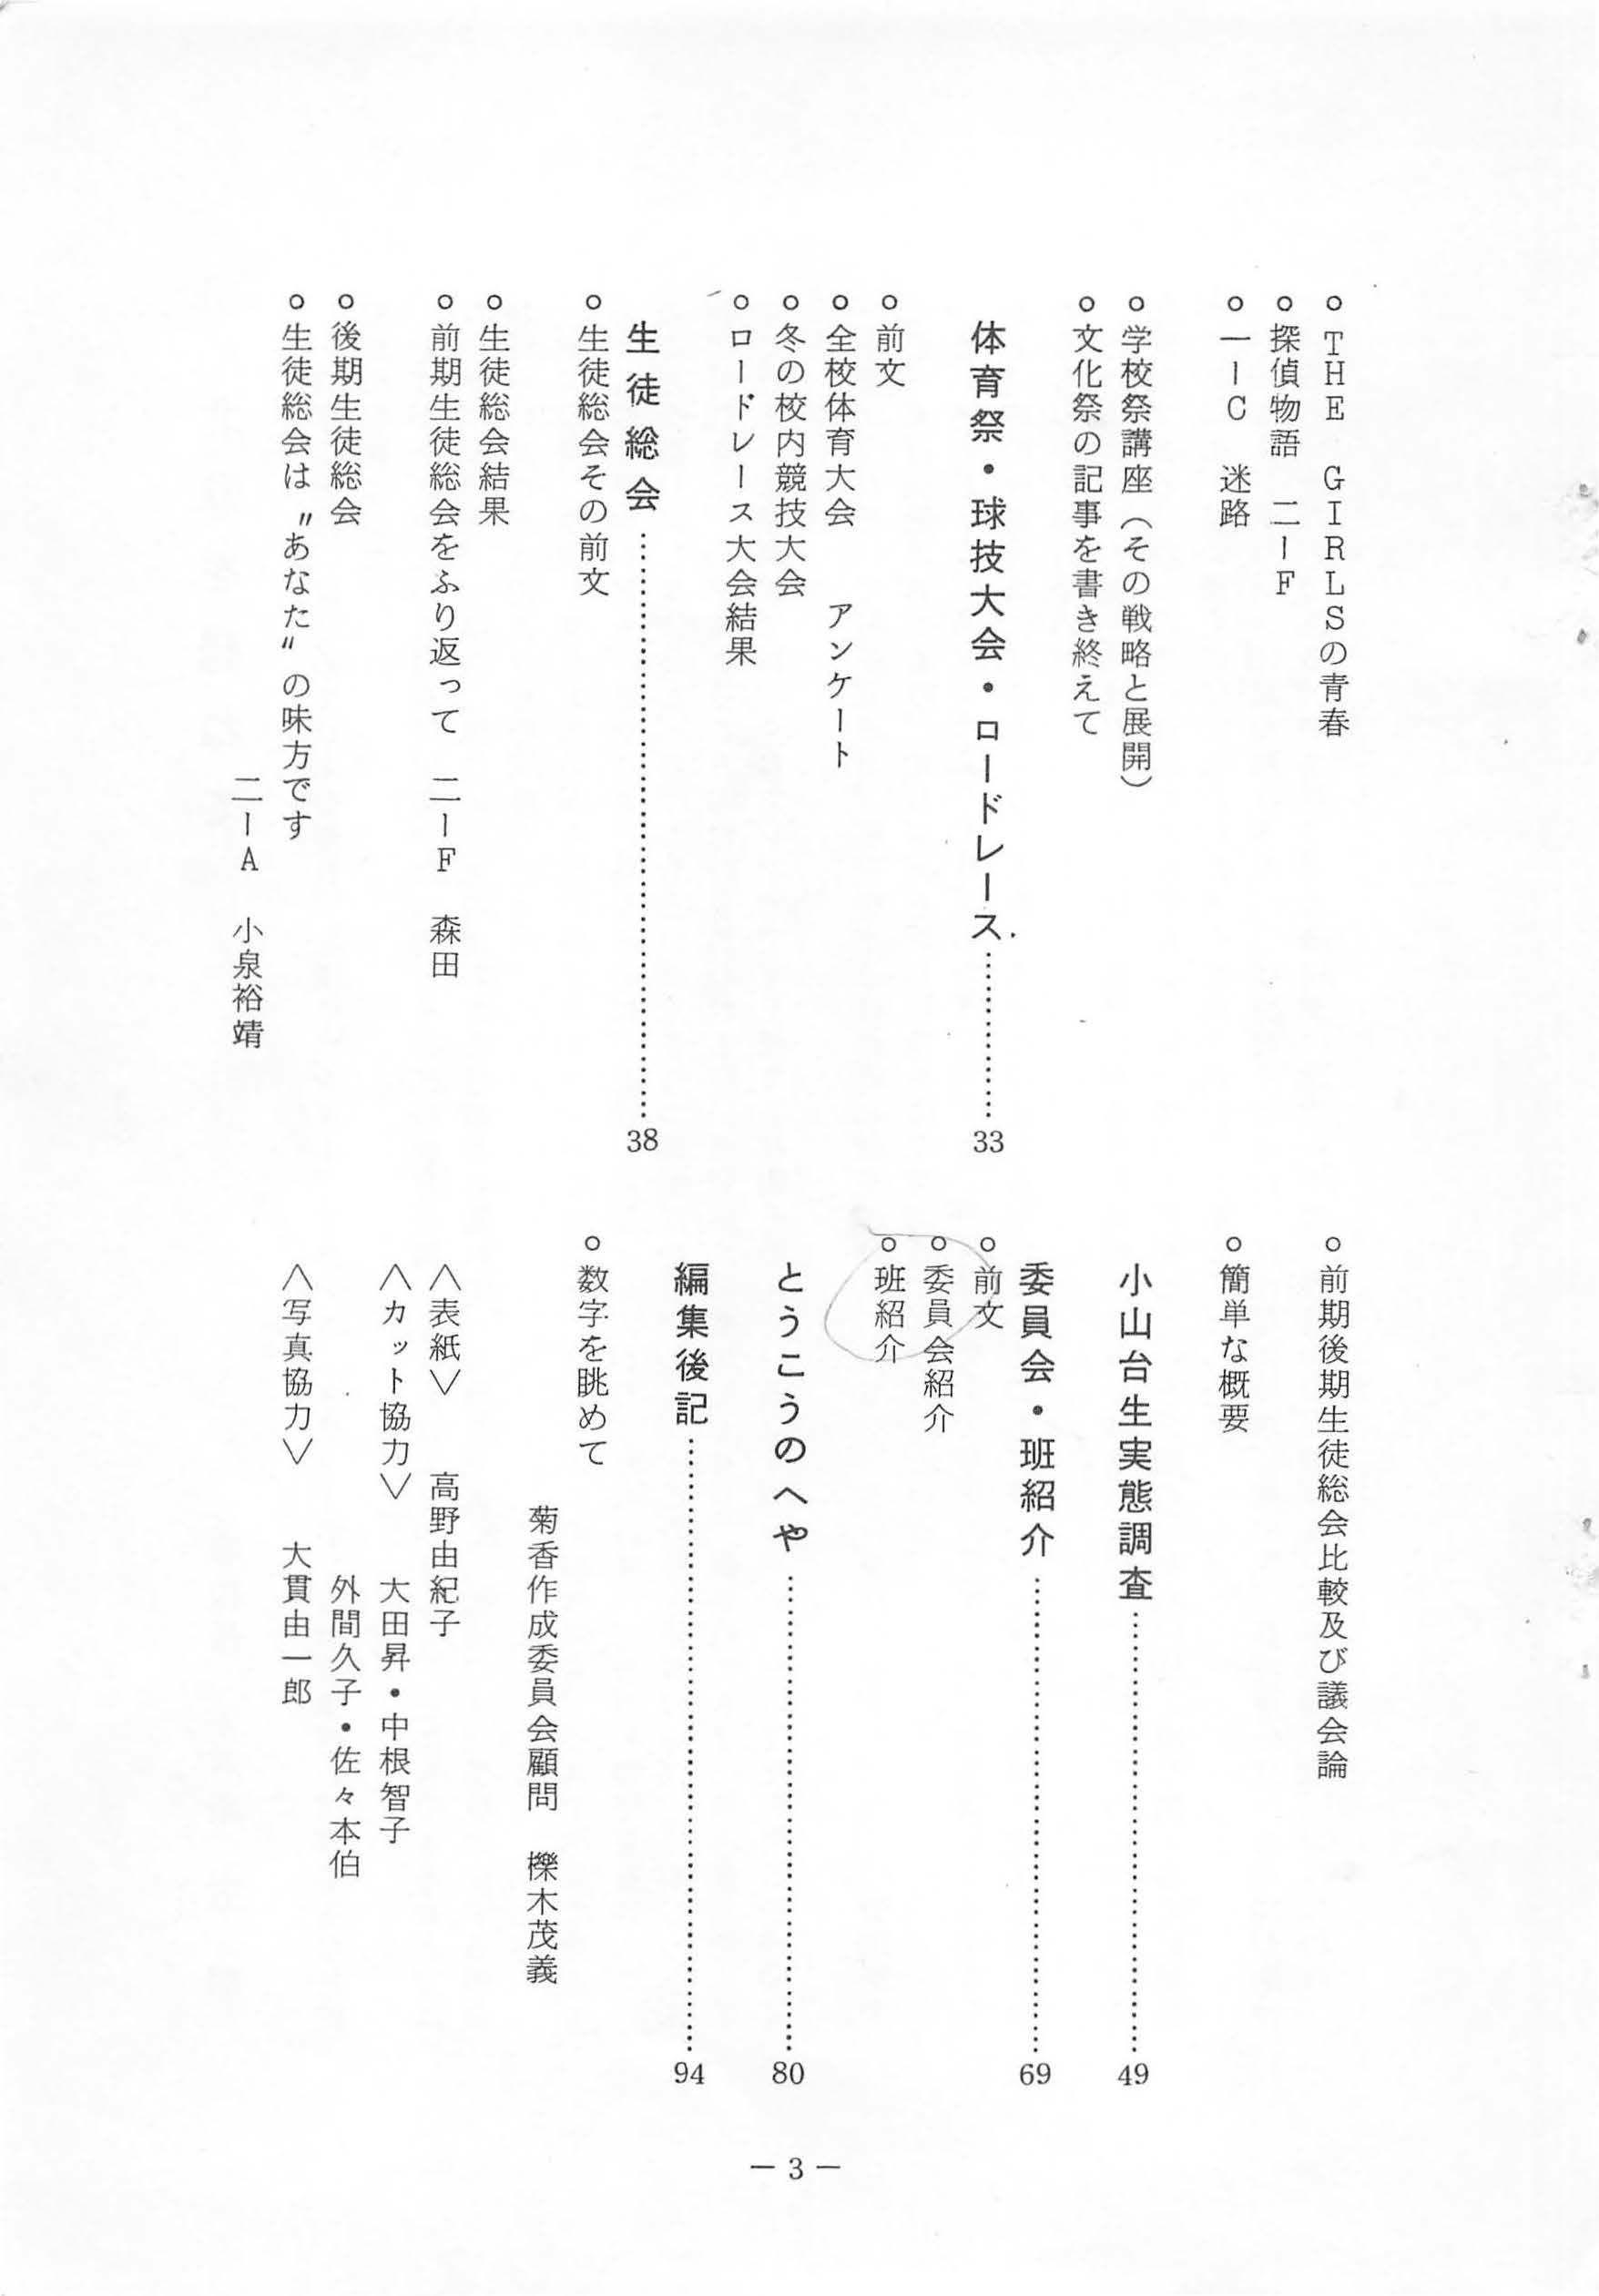 ○THE GIRLSの青春
○探偵物語 二ーF
○一ーC 迷路
○学校祭講座（その戦略と展開）
○文化祭の記事を書き終えて
体育祭・球技大会・ロードレース…………33
○前文
○全校体育大会 アンケート
○冬の校内競技大会
○ロードレース大会結果
生徒総会…………38
○生徒総会その前文
○生徒総会結果
○前期生徒総会をふり返って 二ーF 森田
○後期生徒総会
○生徒総会は〝あなた〟の味方です
二ーA 小泉裕靖
○前期後期生徒総会比較及び議会論
○簡単な概要
小山台生実態調査…………49
委員会・班紹介…………69
○前文
○委員会紹介
○班紹介
とうこうのへや…………80
編集後記…………94
○数字を眺めて
菊香作成委員会顧問 櫟木茂義
〈表紙〉 高野由紀子
〈カット協力〉 大田昇・中根智子
外間久子・佐々本伯
〈写真協力〉 大貫由一郎
－3－